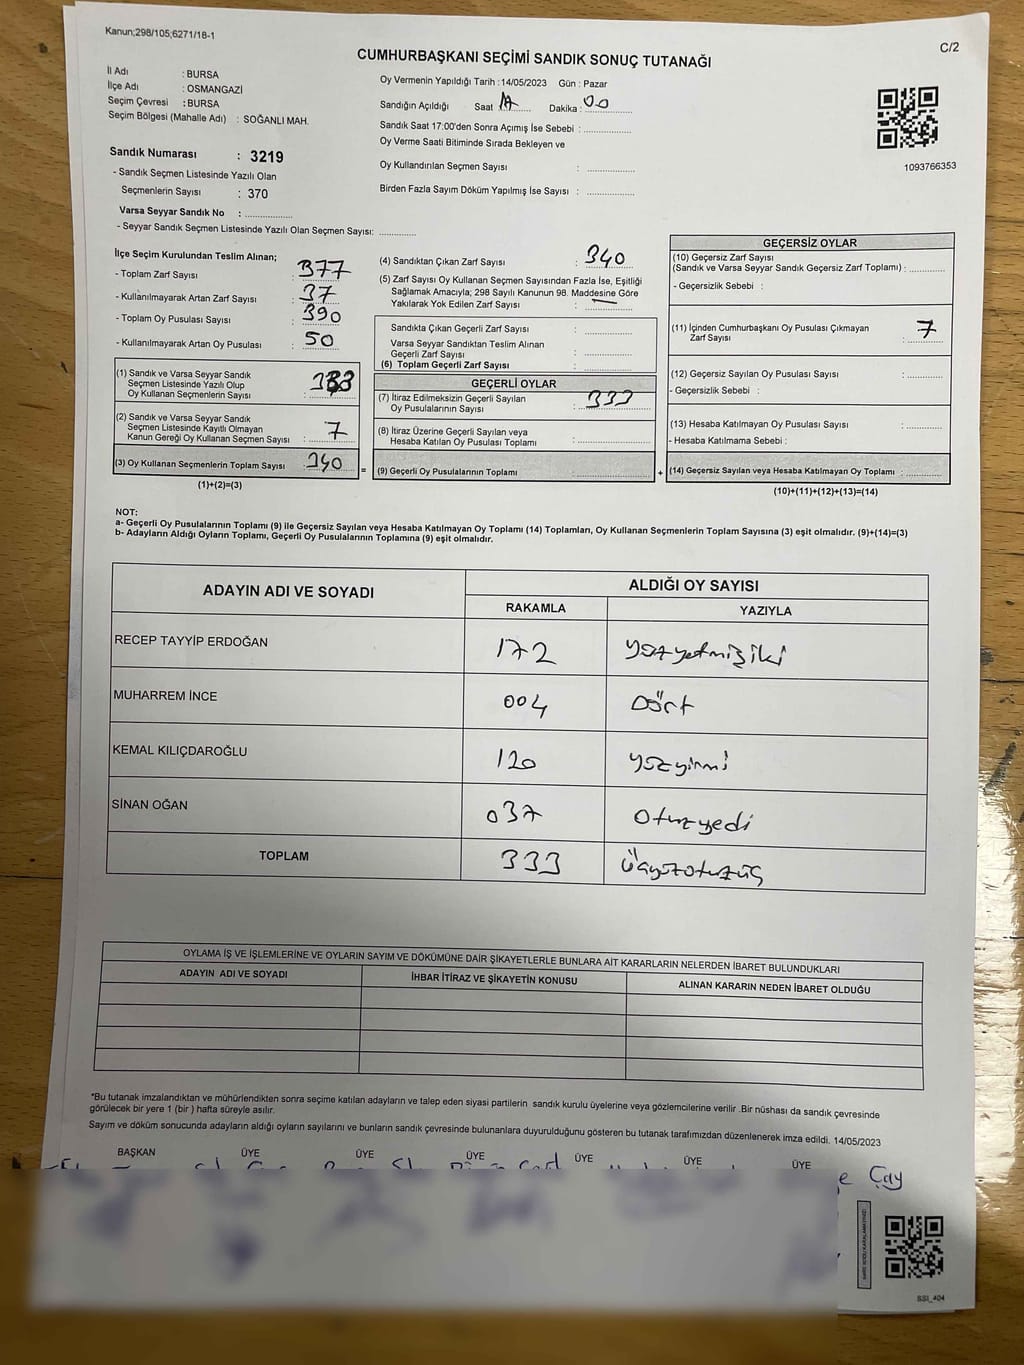 Kanun;298/105;6271/18-1
C/2
CUMHURBAŞKANI SEÇİMİ SANDIK SONUÇ TUTANAĞI
İl Adı : BURSA
İlçe Adı : OSMANGAZİ
Seçim Çevresi : BURSA
Seçim Bölgesi (Mahalle Adı) : SOĞANLI MAH.
Oy Vermenin Yapıldığı Tarih : 14/05/2023 Gün : Pazar
Sandığın Açıldığı Saat Dakika : 00
Sandık Saat 17:00'den Sonra Açımış İse Sebebi :
Oy Verme Saati Bitiminde Sırada Bekleyen ve
Oy Kullandırılan Seçmen Sayısı :
Birden Fazla Sayım Döküm Yapılmış İse Sayısı :
1093766353
Sandık Numarası : 3219
- Sandık Seçmen Listesinde Yazılı Olan
Seçmenlerin Sayısı : 370
Varsa Seyyar Sandık No :
- Seyyar Sandık Seçmen Listesinde Yazılı Olan Seçmen Sayısı:
İlçe Seçim Kurulundan Teslim Alınan;
- Toplam Zarf Sayısı : 377
- Kullanılmayarak Artan Zarf Sayısı : 37
- Toplam Oy Pusulası Sayısı : 390
- Kullanılmayarak Artan Oy Pusulası : 50
(1) Sandık ve Varsa Seyyar Sandık
Seçmen Listesinde Yazılı Olup
Oy Kullanan Seçmenlerin Sayısı : 333
(2) Sandık ve Varsa Seyyar Sandık
Seçmen Listesinde Kayıtlı Olmayan
Kanun Gereği Oy Kullanan Seçmen Sayısı : 7
(3) Oy Kullanan Seçmenlerin Toplam Sayısı : 340
(1)+(2)=(3)
=
(4) Sandıktan Çıkan Zarf Sayısı : 340
(5) Zarf Sayısı Oy Kullanan Seçmen Sayısından Fazla İse, Eşitliği
Sağlamak Amacıyla; 298 Sayılı Kanunun 98. Maddesine Göre
Yakılarak Yok Edilen Zarf Sayısı : —
Sandıkta Çıkan Geçerli Zarf Sayısı :
Varsa Seyyar Sandıktan Teslim Alınan
Geçerli Zarf Sayısı :
(6) Toplam Geçerli Zarf Sayısı :
GEÇERLİ OYLAR
(7) İtiraz Edilmeksizin Geçerli Sayılan
Oy Pusulalarının Sayısı : 333
(8) İtiraz Üzerine Geçerli Sayılan veya
Hesaba Katılan Oy Pusulası Toplamı :
(9) Geçerli Oy Pusulalarının Toplamı
+
GEÇERSİZ OYLAR
(10) Geçersiz Zarf Sayısı
(Sandık ve Varsa Seyyar Sandık Geçersiz Zarf Toplamı) :
- Geçersizlik Sebebi :
(11) İçinden Cumhurbaşkanı Oy Pusulası Çıkmayan
Zarf Sayısı : 7
(12) Geçersiz Sayılan Oy Pusulası Sayısı :
- Geçersizlik Sebebi :
(13) Hesaba Katılmayan Oy Pusulası Sayısı :
- Hesaba Katılmama Sebebi :
(14) Geçersiz Sayılan veya Hesaba Katılmayan Oy Toplamı :
(10)+(11)+(12)+(13)=(14)
NOT:
a- Geçerli Oy Pusulalarının Toplamı (9) ile Geçersiz Sayılan veya Hesaba Katılmayan Oy Toplamı (14) Toplamları, Oy Kullanan Seçmenlerin Toplam Sayısına (3) eşit olmalıdır. (9)+(14)=(3)
b- Adayların Aldığı Oyların Toplamı, Geçerli Oy Pusulalarının Toplamına (9) eşit olmalıdır.
ADAYIN ADI VE SOYADI
ALDIĞI OY SAYISI
RAKAMLA YAZIYLA
RECEP TAYYİP ERDOĞAN 172 yüzyetmişiki
MUHARREM İNCE 004 Dört
KEMAL KILIÇDAROĞLU 120 yüzyirmi
SİNAN OĞAN 037 Otuzyedi
TOPLAM 333 Üçyüzotuzüç
OYLAMA İŞ VE İŞLEMLERİNE VE OYLARIN SAYIM VE DÖKÜMÜNE DAİR ŞİKAYETLERLE BUNLARA AİT KARARLARIN NELERDEN İBARET BULUNDUKLARI
ADAYIN ADI VE SOYADI İHBAR İTİRAZ VE ŞİKAYETİN KONUSU ALINAN KARARIN NEDEN İBARET OLDUĞU
*Bu tutanak imzalandıktan ve mühürlendikten sonra seçime katılan adayların ve talep eden siyasi partilerin sandık kurulu üyelerine veya gözlemcilerine verilir .Bir nüshası da sandık çevresinde
görülecek bir yere 1 (bir ) hafta süreyle asılır.
Sayım ve döküm sonucunda adayların aldığı oyların sayılarını ve bunların sandık çevresinde bulunanlara duyurulduğunu gösteren bu tutanak tarafımızdan düzenlenerek imza edildi. 14/05/2023
BAŞKAN ÜYE ÜYE ÜYE ÜYE ÜYE ÜYE
Çay
SSI_404